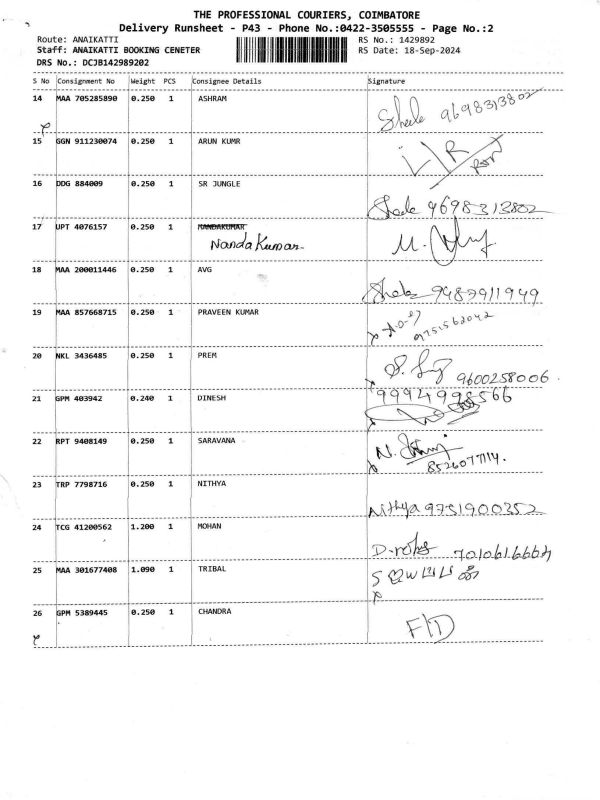 THE PROFESSIONAL COURIERS, COIMBATORE
Delivery Runsheet - P43 - Phone No.:0422-3505555 - Page No.:2
Route: ANAIKATTI
RS No.: 1429892
Staff: ANAIKATTI BOOKING CENETER
RS Date: 18-Sep-2024
DRS No.: DCJB142989202
S No Consignment No Weight PCS Consignee Details Signature
14 MAA 705285890 0.250 1 ASHRAM
9698313802
15 GGN 911230074 0.250 1 ARUN KUMR
16 DDG 884009 0.250 1 SR JUNGLE
9698313802
17 UPT 4076157 0.250 1 NANDAKUMAR
Nanda Kumar
18 MAA 200011446 0.250 1 AVG
19 MAA 857668715 0.250 1 PRAVEEN KUMAR
9751562042
20 NKL 3436485 0.250 1 PREM
9600258006
21 GPM 403942 0.240 1 DINESH
22 RPT 9408149 0.250 1 SARAVANA
23 TRP 7798716 0.250 1 NITHYA
Nithya 9751900352
24 TCG 41200562 1.200 1 MOHAN
25 MAA 301677408 1.090 1 TRIBAL
26 GPM 5389445 0.250 1 CHANDRA
F/D